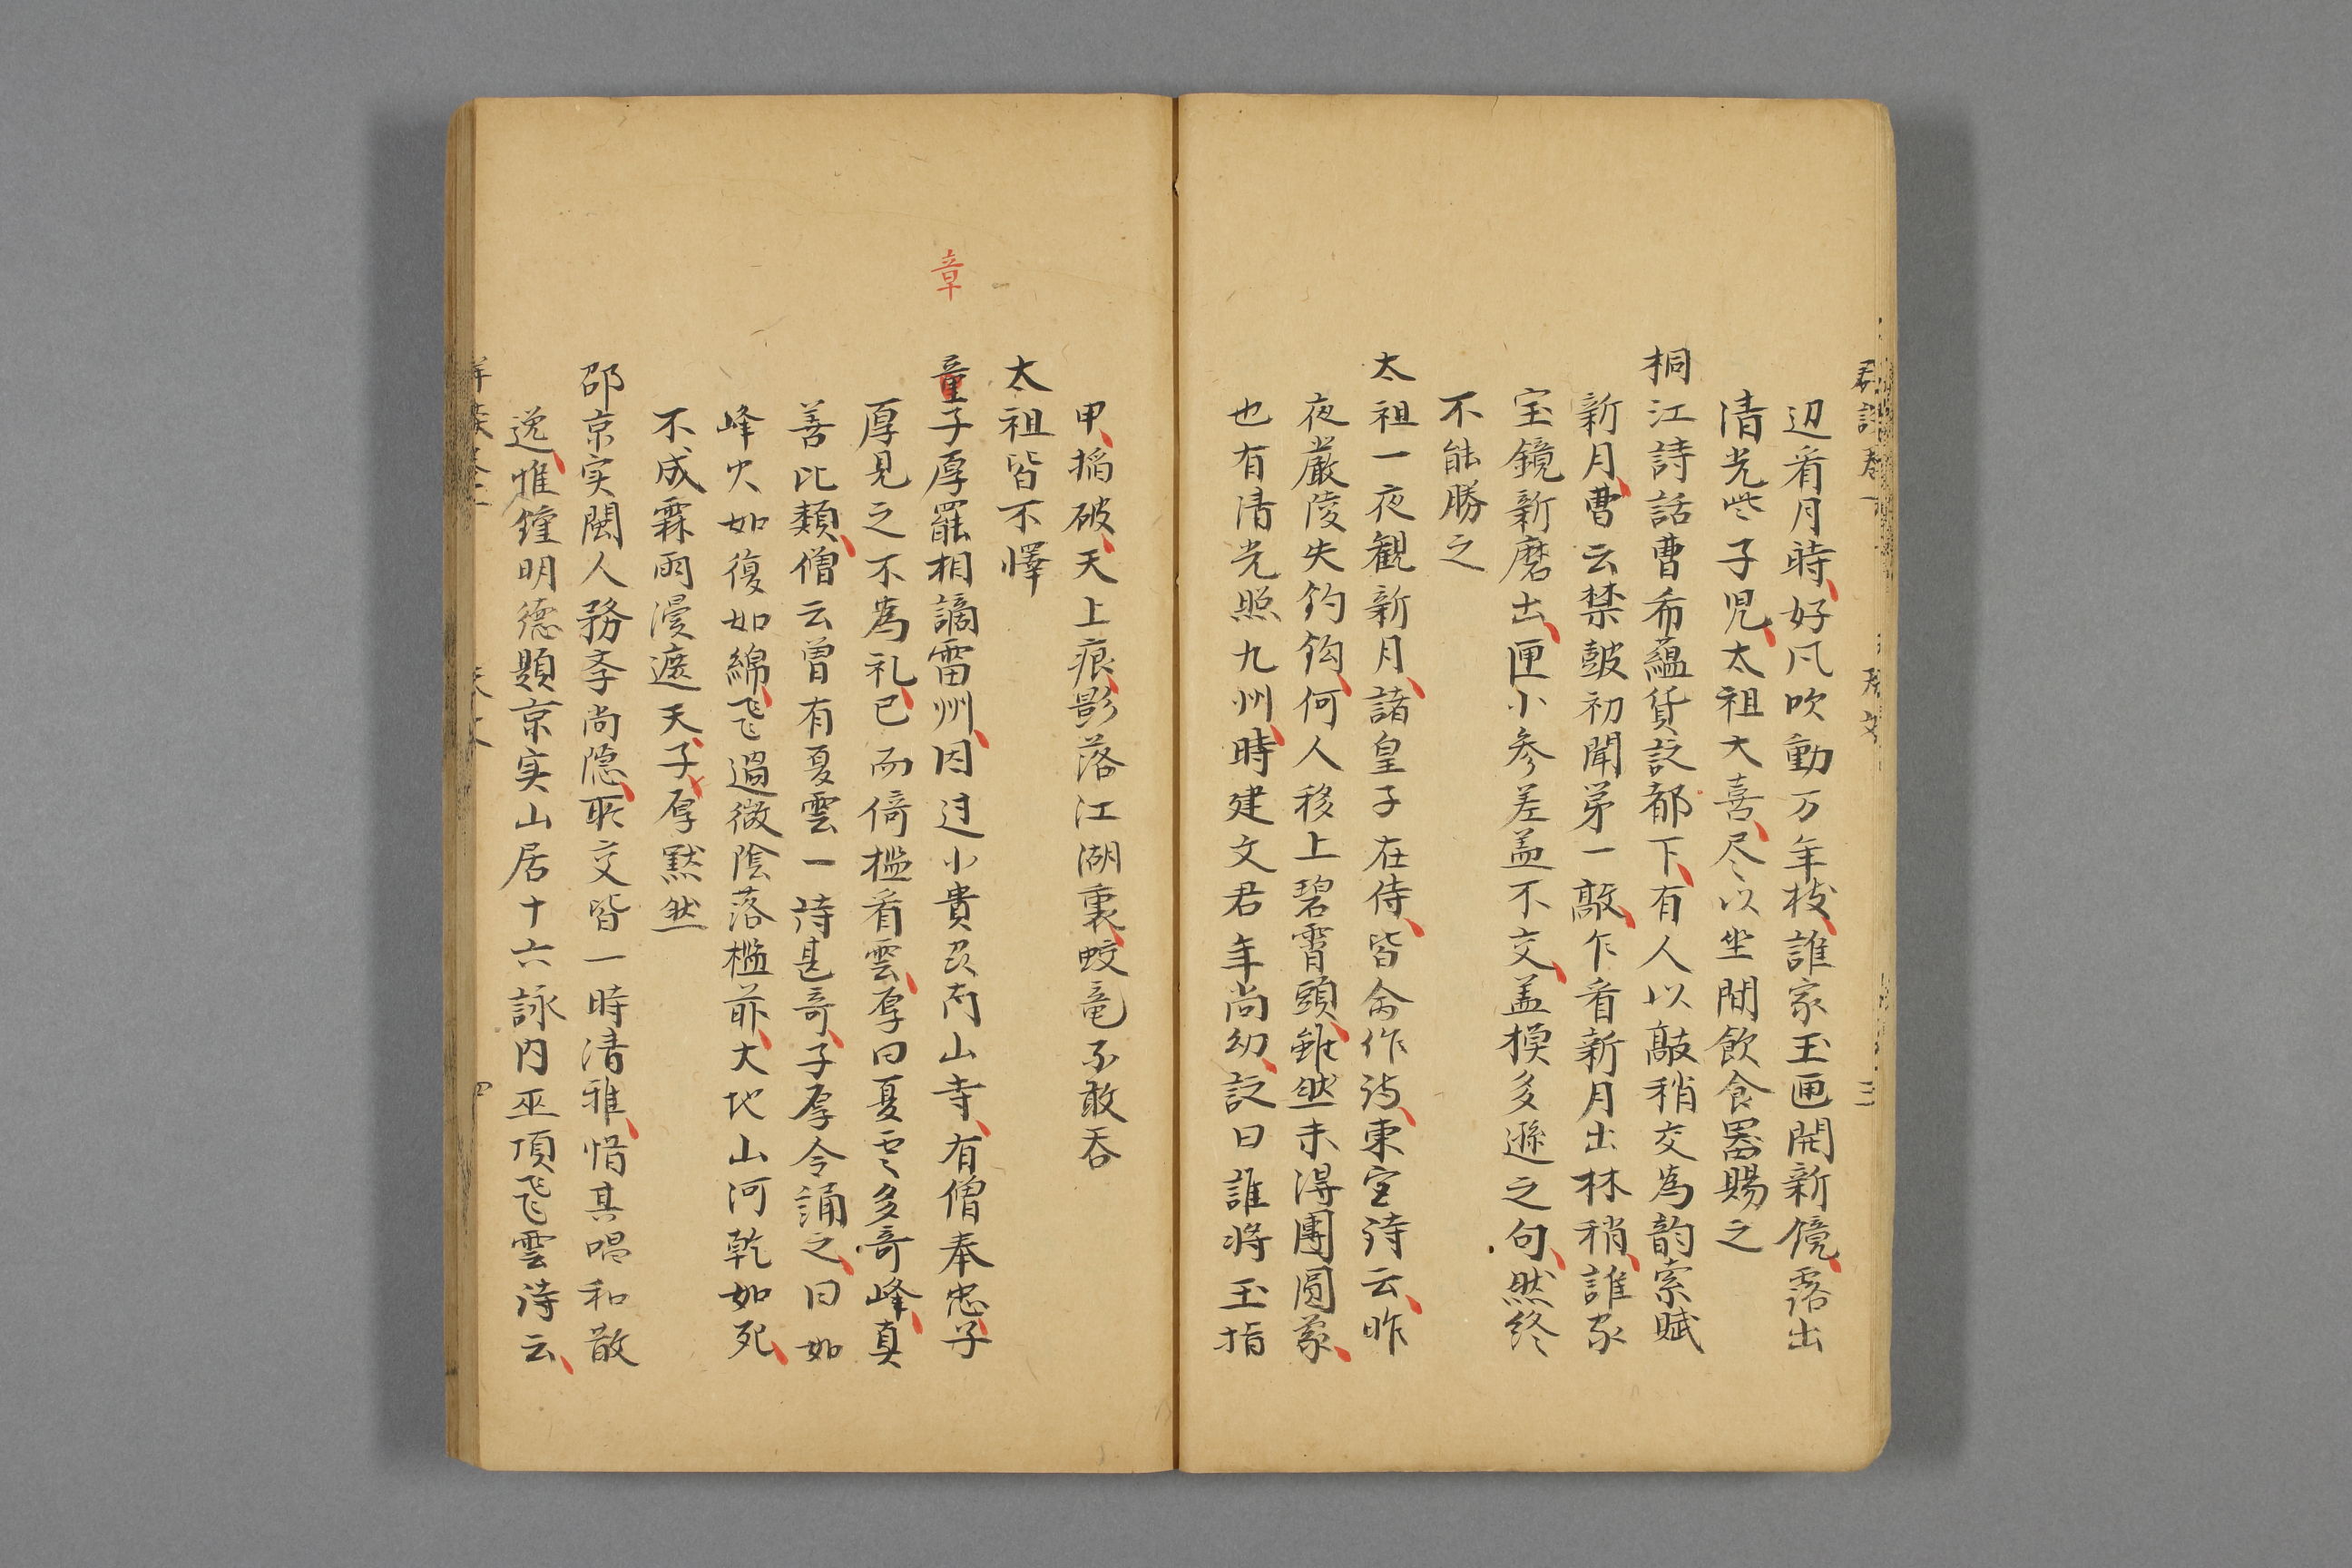 辺看月時好凡吹動万年枝誰家玉匣開新鏡露出
清光些子児太祖大喜尽以坐間飲食噐賜之
桐江詩話曹希蘊貨訟都下有人以敲稍交為韵索賦
新月曹云禁皷初聞第一敲乍看新月出林稍誰家
宝鏡新磨出匣小參差盖不交盖模多遜之句然終
不能勝之
太祖一夜観新月諸皇子在侍皆命作詩東宮詩云昨
夜厳陵失釣鈎何人移上碧霄頭雖然未得團圓象
也有清光照九州時建文君年尚幼訟曰誰将玉指
甲搯破天上痕影落江湖裏蛟竜不敢吞
太祖皆不懌
章
童子厚罷相謫雷州因过小貴山寺有僧奉忠子
厚見之不為礼已而倚檻看雲厚曰夏雲多奇峰真
善比類僧云曽有夏雲一詩甚奇子厚令誦之曰如
峰火如復如綿飞過微陰落檻前大地山河乾如死
不成霖雨漫遮天子厚黙然
邵京実閩人務孝尚隐所交皆一時清雅惜其唱和散
逸惟鐘明德題京実山居十六詠内巫頂飞雲詩云